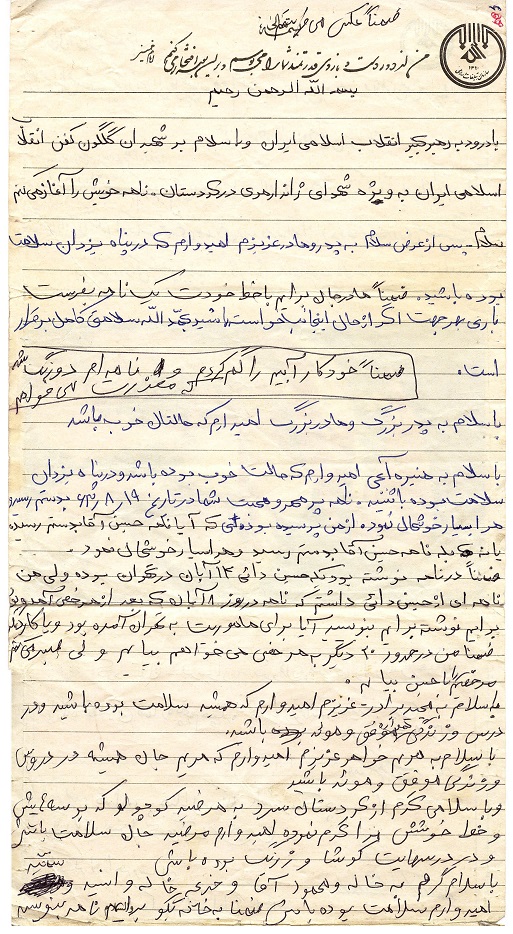 ضمناً عکس
من از دور دست و بازوی قدرتمند شما را می‌بوسم و بر این بوسه افتخار می‌کنم امام خمینی
بسمه الله الرحمن رحیم
با درود به رهبر کبیر انقلاب اسلامی ایران و با سلام بر شهیدان گلگون کفن انقلاب
اسلامی ایران به ویژه شهدای ژاندارمری در کردستان. نامه خویش را آغاز می‌کنم
سلام - پس از عرض سلام به پدر و مادر عزیزم امیدوارم که در پناه یزدان سلامت
بوده باشید. ضمناً مادر جان برایم با خط خودت یک نامه بفرست
باری هر جهت اگر از حال اینجانب خواسته باشید بحمد الله سلامتی کامل برقرار
است.
ضمناً خودکار آبیم را گم کردم و نامه‌ام دو رنگ شد
که معذرت می‌خواهم
با سلام به پدر بزرگ و مادر بزرگ امیدوارم که حالتان خوب باشد
با سلام به منیره آبجی امیدوارم که حالت خوب بوده باشد و در پناه یزدان
سلامت بوده باشید. نامه پر مهر و محبت شما در تاریخ ۱۹/۸/ بدستم رسید و
مرا بسیار خوشحال نموده از من پرسیده بودی که آیا نامه حسن آقا بدستم رسیده
یا نه بله نامه حسن آقا بدستم رسید و مرا بسیار خوشحال نمود.
ضمناً در نامه نوشته بود که حسن دائی ۱۲ آبان در تهران بوده ولی من
نامه‌ای از حسن دائی داشتم که نامه در روز ۸ آبان که بعد از مرخصی آمده بود
برایم نوشته برایم بنویسید آیا برای ماموریت به تهران آمده بود و یا کار دیگر
ضمناً من در حدود ۲۰ دیگر به مرخصی می‌خواهم بیایم و لی صبر می‌کنم
مرخصیم با حسن بیایم.
با سلام به مجید برادر عزیزم امیدوارم که همیشه سلامت بوده باشید و در
درس و زندگی موفق و موید بوده باشید.
با سلام به مریم خواهر عزیزم امیدوارم که مریم جان همیشه در دروس
و زندگی موفق و موید باشید
و با سلامی گرم از کردستان سرد به مرضیه کوچولو که بر
و خط خوشش مرا گرم نموده امیدوارم مرضیه جان سلامت باشی
و در درسهایت کوشا و زرنگ بوده باشی
با سلام گرم به خاله و محمود آقا و خاله و انسیه و
امیدوارم سلامت بوده باشی ضمناً به خاله بگو برایم نامه بنویسد